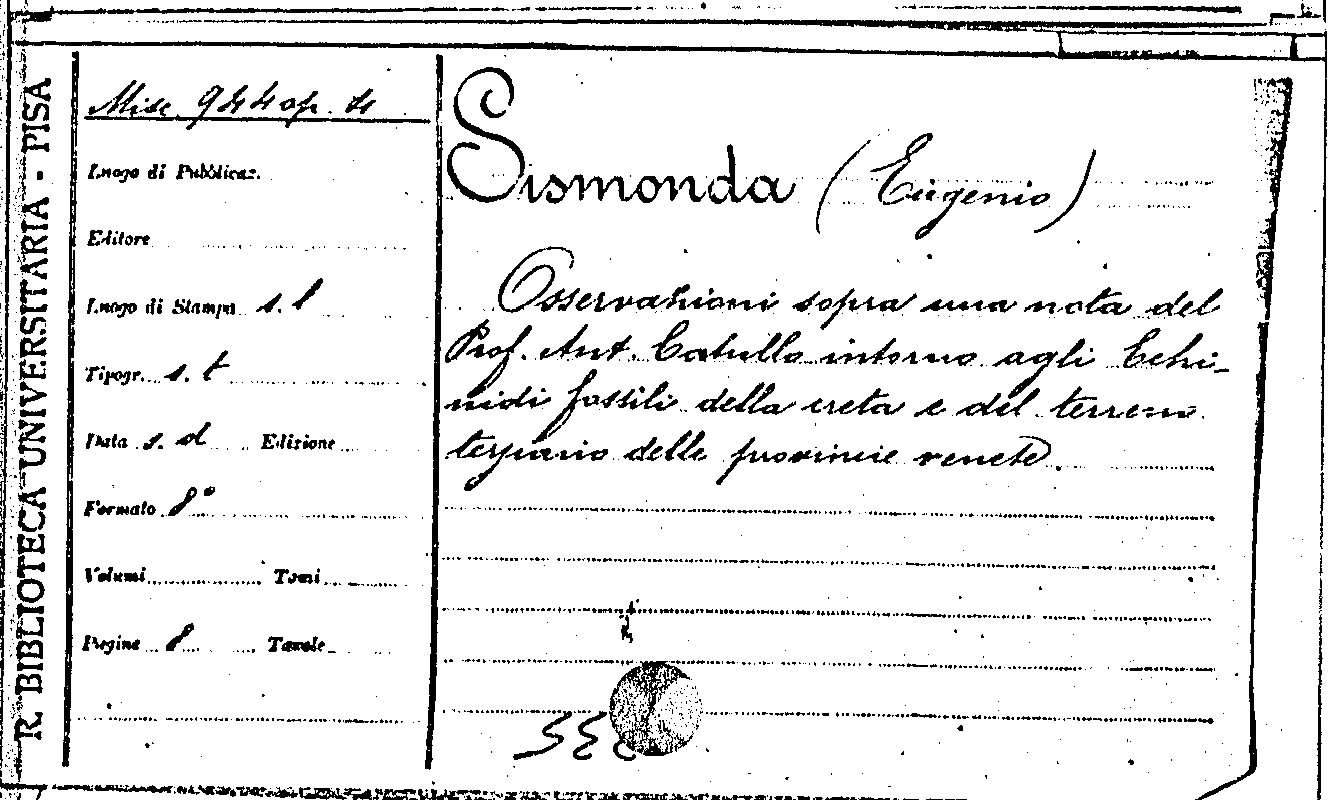 R. BIBLIOTECA UNIVERSITARIA - PISA
Misc. 944 op. 4
Luogo di Pubblicaz.
Editore
Luogo di Stampa s. l
Tipogr. s. t
Data s. d Edizione
Formato 8°
Volumi Tomi
Pagine 8 Tavole
Sismonda (Eugenio)
Osservazioni sopra una nota del
Prof. Ant. Catullo intorno agli Echi-
nidi fossili della creta e del terreno
terziario delle provincie venete.